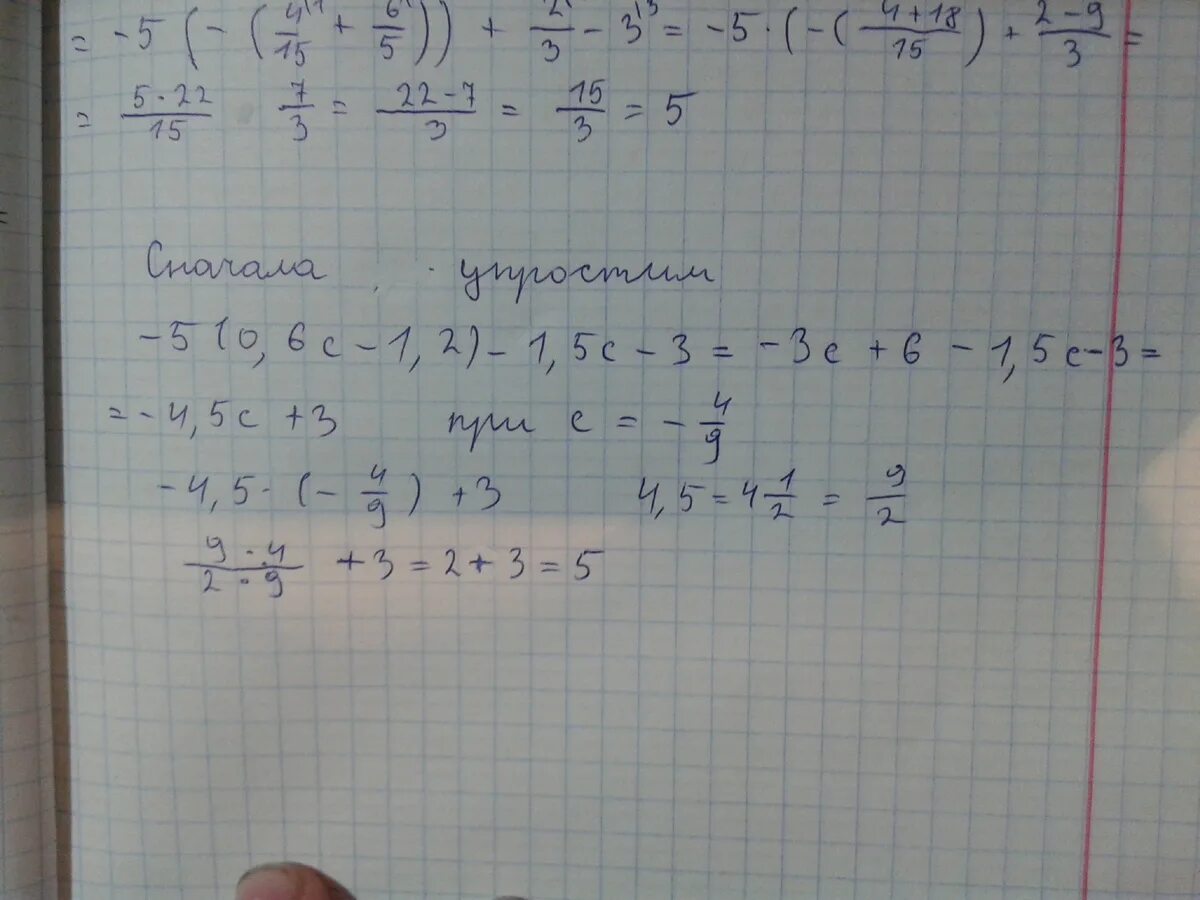 = -5 (-(4/15 + 6/5)) + 2/3 - 3 = -5·(-(4+18/15) + 2-9/3 =
= 5·22/15 7/3 = 22-7/3 = 15/3 = 5
Сначала упростим
-5(0,6с-1,2)-1,5с-3 = -3с+6-1,5с-3=
=-4,5с+3 при с = -4/9
-4,5·(-4/9)+3 4,5=4 1/2 = 9/2
9·4/2·9 +3=2+3=5